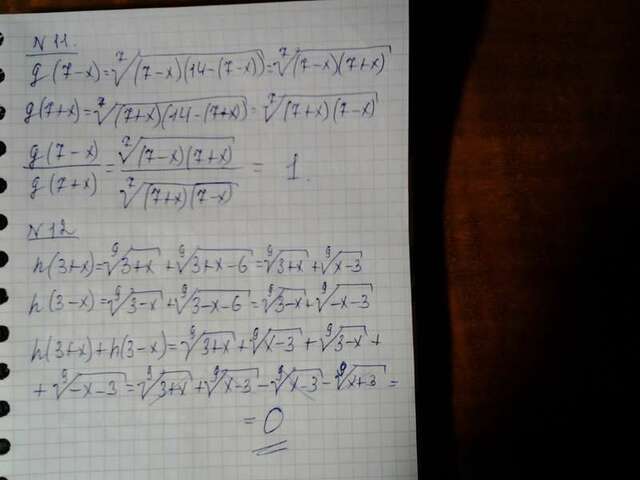 N 11.
g(7-x)=⁷√((7-x)(14-(7-x)))=⁷√((7-x)(7+x))
g(7+x)=⁷√((7+x)(14-(7+x)))=⁷√((7+x)(7-x))
g(7-x)/g(7+x)=⁷√((7-x)(7+x))/⁷√((7+x)(7-x))=1.
N 12
h(3+x)=⁹√(3+x)+⁹√(3+x-6)=⁹√(3+x)+⁹√(x-3)
h(3-x)=⁹√(3-x)+⁹√(3-x-6)=⁹√(3-x)+⁹√(-x-3)
h(3+x)+h(3-x)=⁹√(3+x)+⁹√(x-3)+⁹√(3-x)+
+⁹√(-x-3)=⁹√(3+x)+⁹√(x-3)-⁹√(x-3)-⁹√(x+3)=
=0